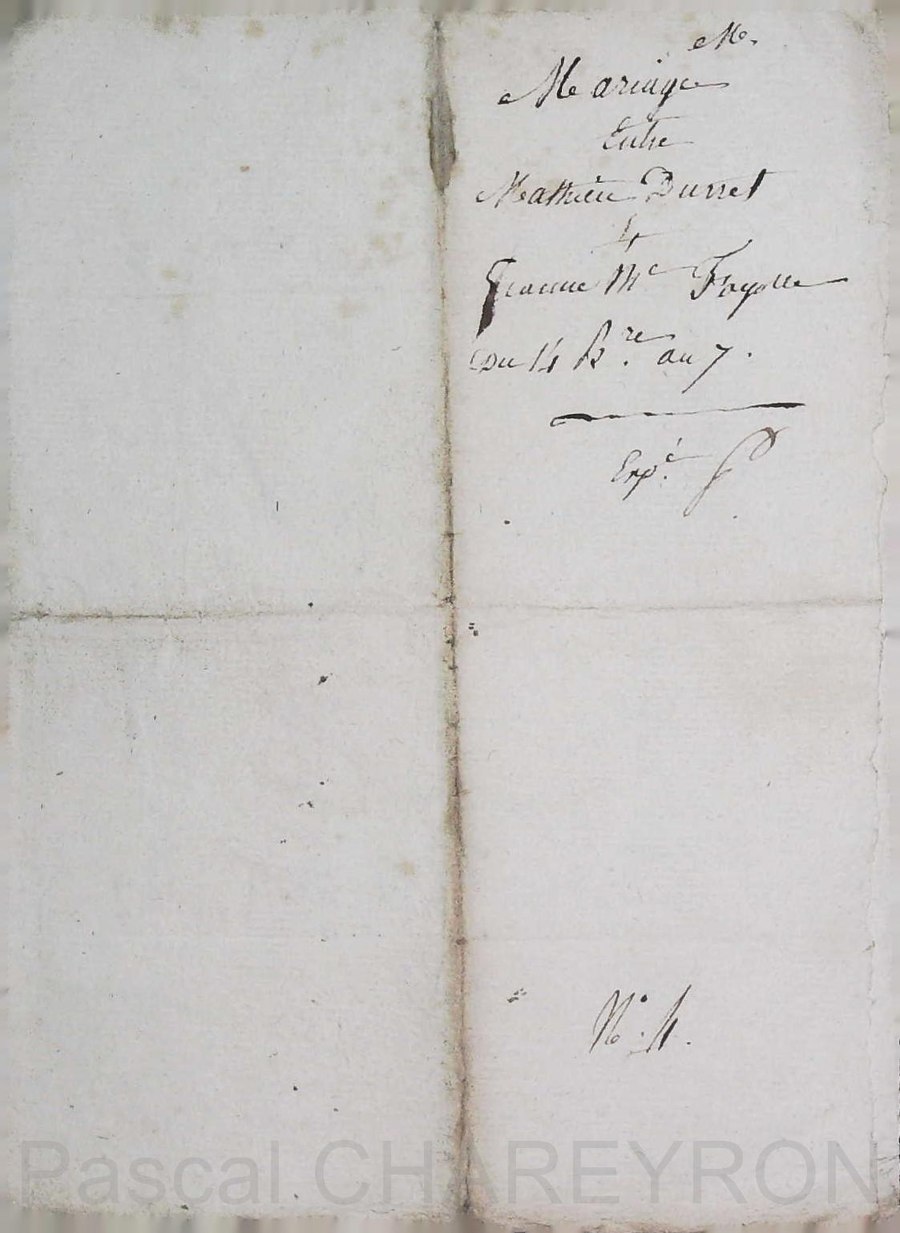 Me.
Mariage
Entre
Mathieu Durret
&
Jeanne Me Fayolle
Du 14 Bre. an 7.
Expé.
No. 4.
Pascal CHAREYRON